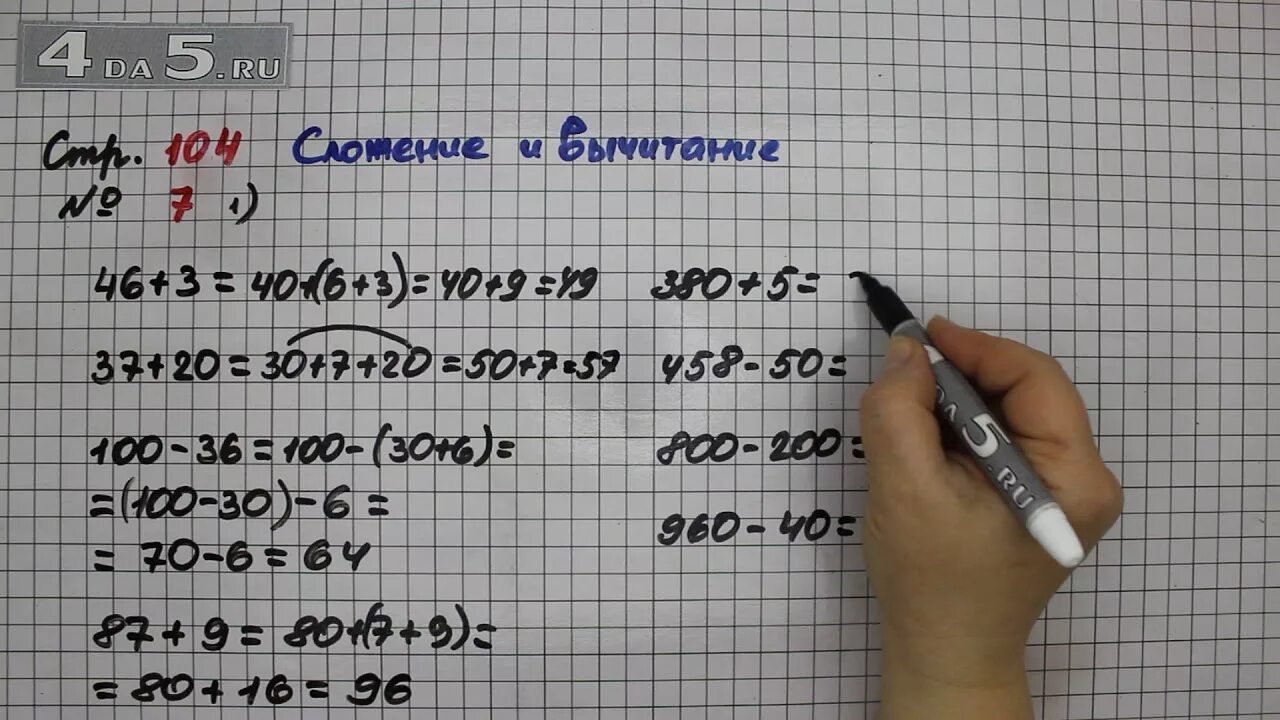 4DA5.RU
Стр. 104 Сложение и Вычитание
№ 7 1)
46+3 = 40+(6+3) = 40+9 = 49
37+20 = 30+7+20 = 50+7=57
100-36 = 100-(30+6) =
= (100-30)-6 =
= 70-6 = 64
87+9 = 80+(7+9) =
= 80+16 = 96
380+5=
458-50=
800-200=
960-40=
DA5.RU